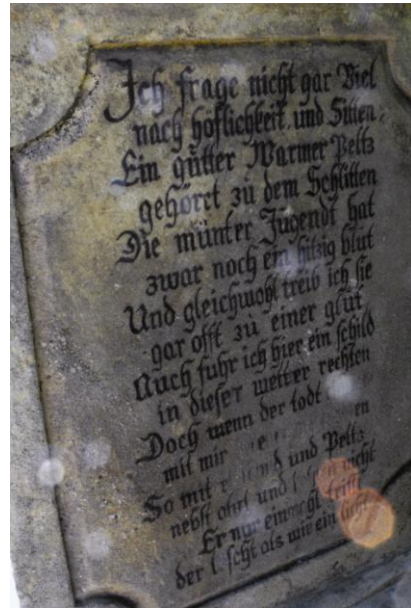 Ich frage nicht gar Viel
nach höflichkeit, und Sitten,
Ein gutter Warmer Peltz
gehöret zu dem Schlitten
Die munter Jugendt hat
zwar noch ein hitzig blut
Und gleichwohl treib ich sie
gar offt zu einer glut
Auch fuhr ich hier ein schild
in dieser wetter rechten
Doch wenn der todt
mit mir
So mit und Peltz
nebst und nicht
Er nur
der als wie ein